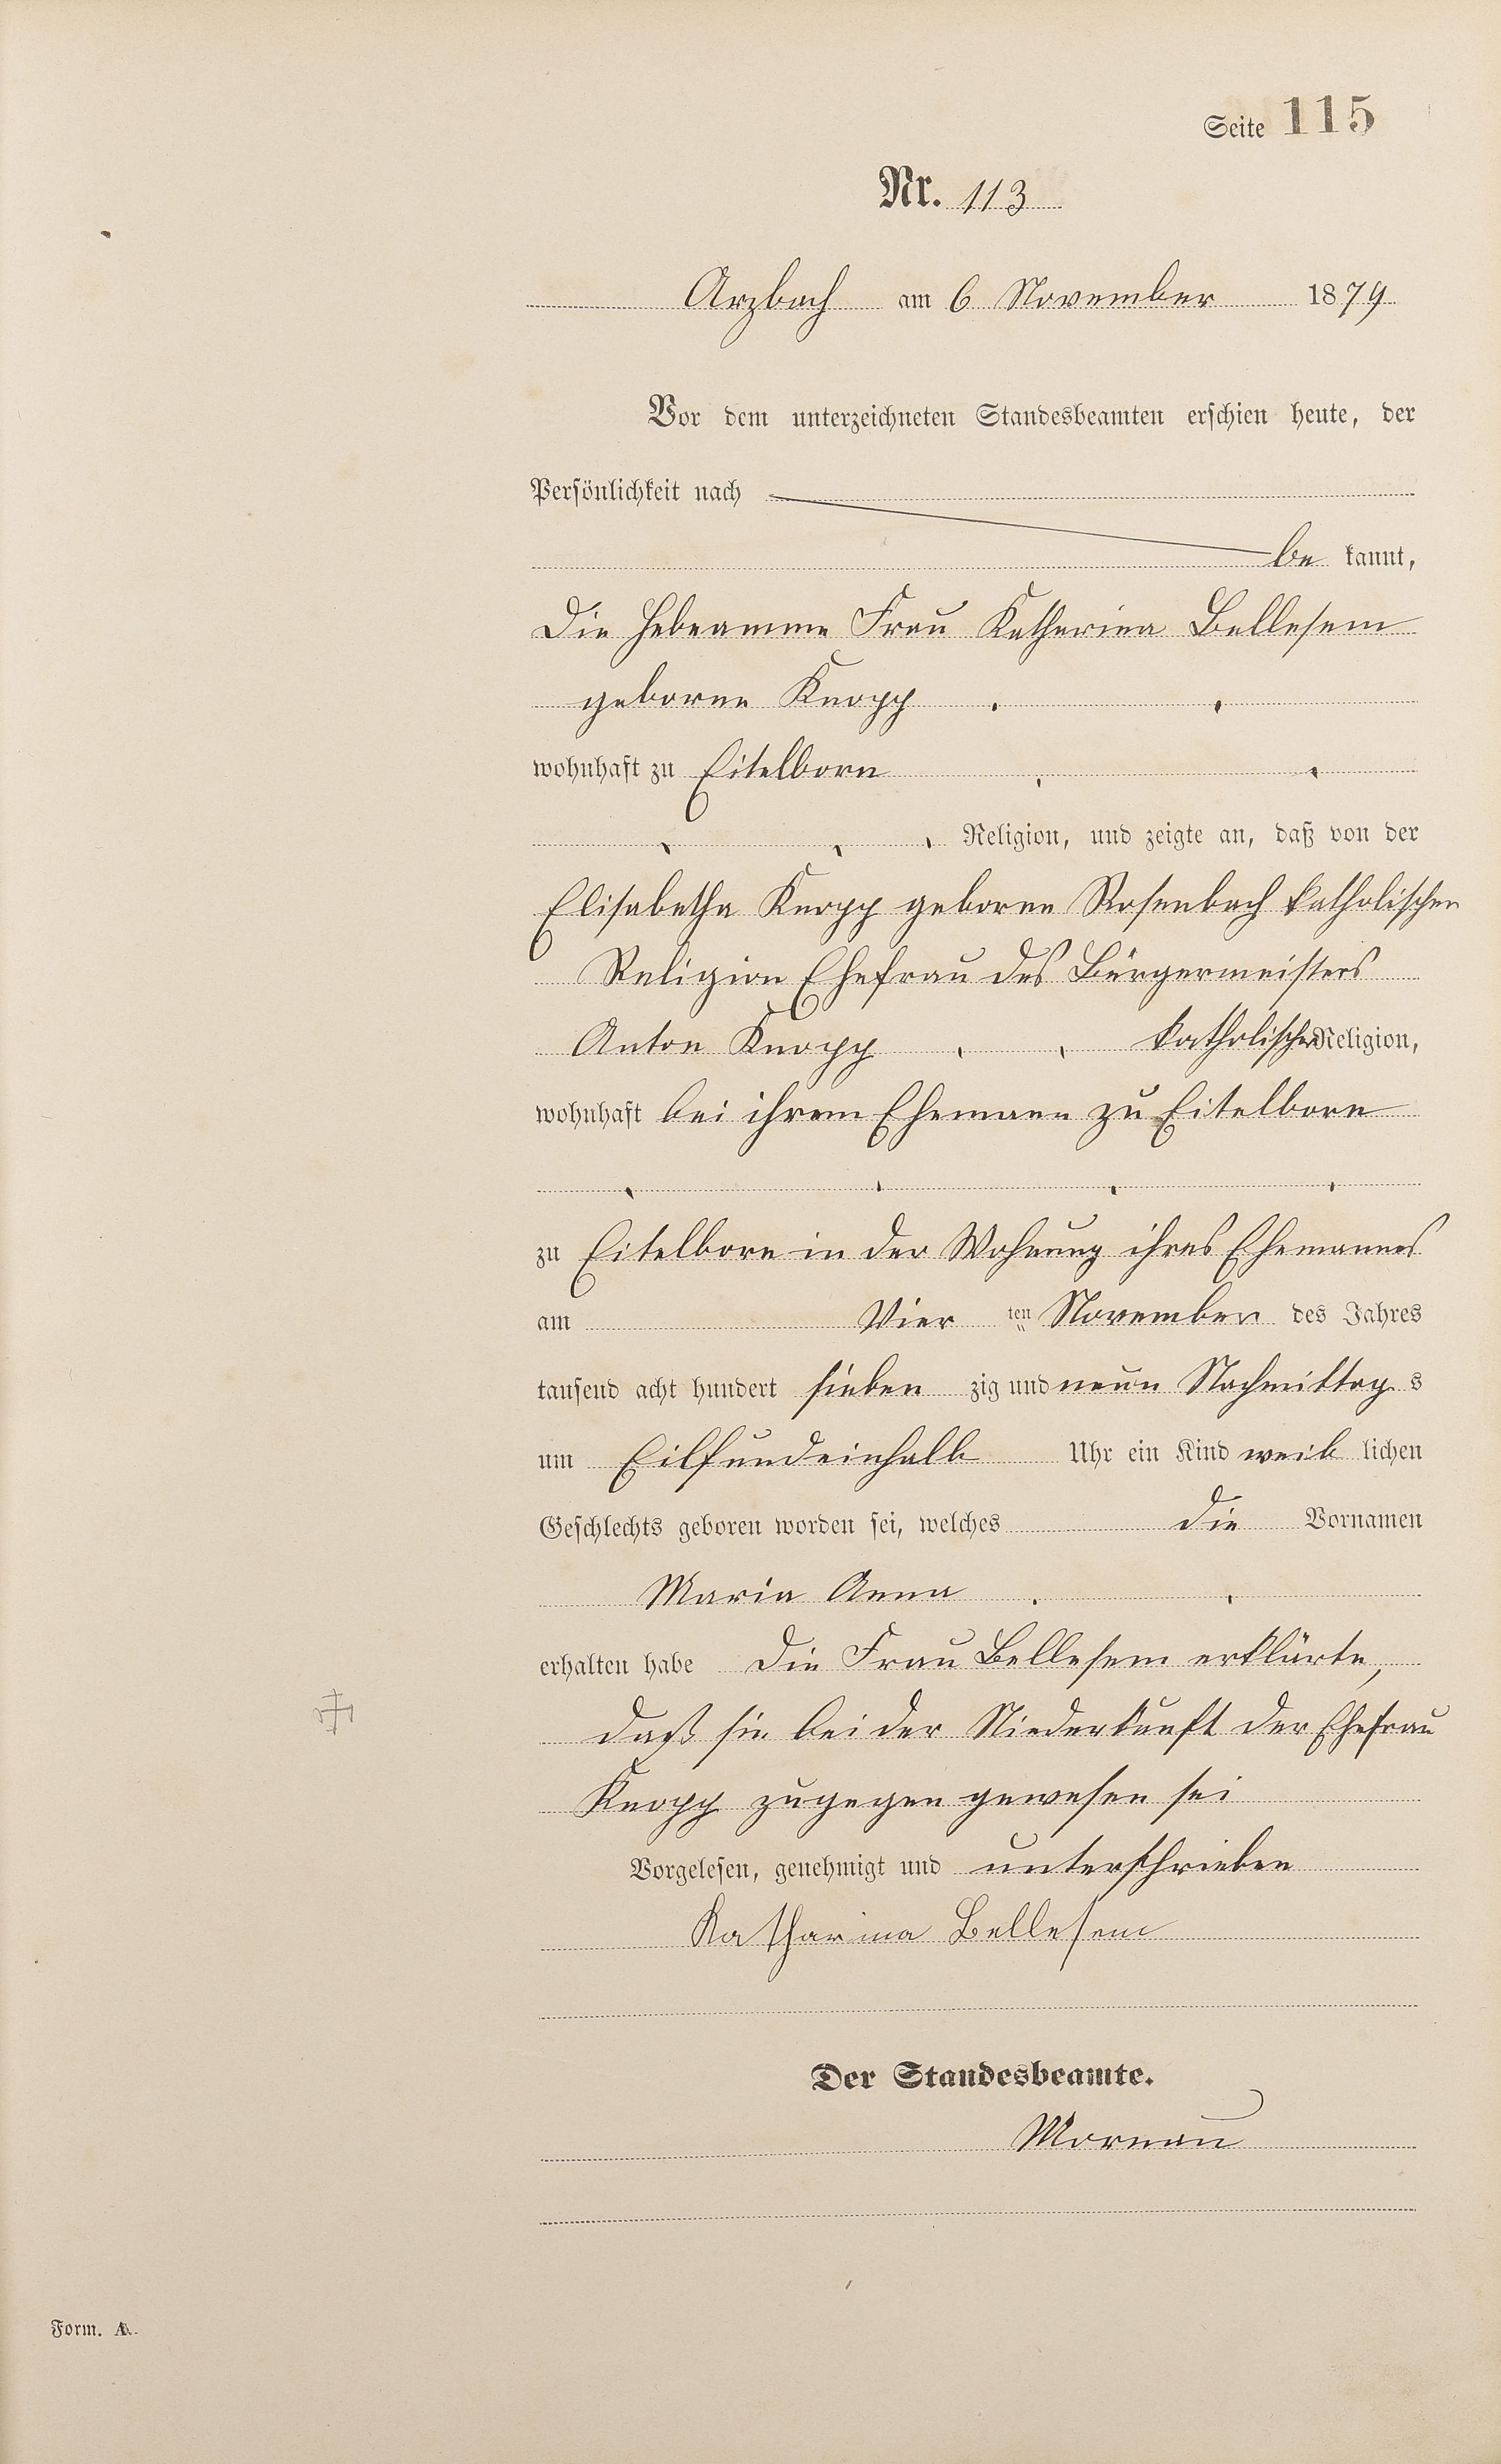 Seite 115
Nr. 113
Arzbach am 6 November 1879
Vor dem unterzeichneten Standesbeamten erschien heute, der
Persönlichkeit nach
be kannt,
Die Hebeamme Frau Katharina Bellesem
geborne Knopp
wohnhaft zu Eitelborn
Religion, und zeigte an, daß von der
Elisabetha Knopp geborne Rosenbach katholischer
Religion Ehefrau des Bürgermeisters
Anton Knopp katholischer Religion,
wohnhaft bei ihrem Ehemann zu Eitelborn
zu Eitelborn in der Wohnung ihres Ehemannes
am Vier ten November des Jahres
tausend acht hundert sieben zig und neun Nachmittag s
um Eilfundeinhalb Uhr ein Kind weib lichen
Geschlechts geboren worden sei, welches die Vornamen
Maria Anna
erhalten habe Die Frau Bellesem erklärte,
daß sie bei der Niederkunft der Ehefrau
Knopp zugegen gewesen sei
Vorgelesen, genehmigt und unterschrieben
Katharina Bellesem
Der Standesbeamte.
Mornau
Form. A.